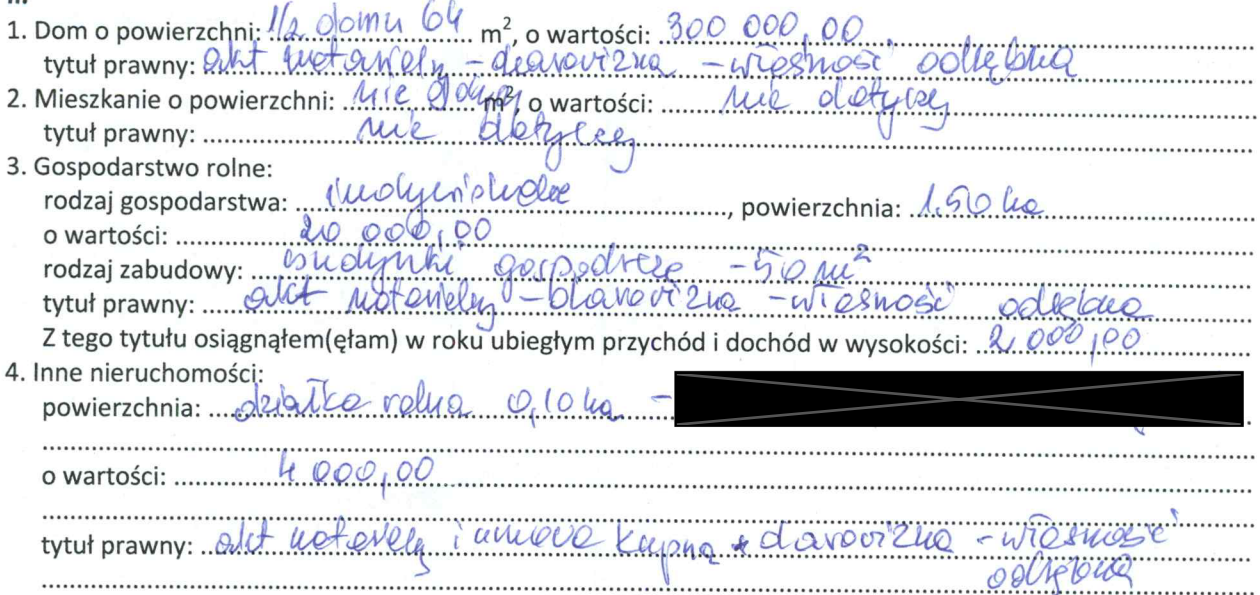 1. Dom o powierzchni: 1/2 domu 64 m², o wartości: 300 000,00
tytuł prawny: akt notarialny - darowizna - własność odrębna
2. Mieszkanie o powierzchni: nie dotyczy m², o wartości: nie dotyczy
tytuł prawny: nie dotyczy
3. Gospodarstwo rolne:
rodzaj gospodarstwa: indywidualne, powierzchnia: 1.50 ha
o wartości: 20 000,00
rodzaj zabudowy: budynki gospodrcze - 50 m²
tytuł prawny: akt notarielny - darowizna - własność odrębna
Z tego tytułu osiągnąłem(ęłam) w roku ubiegłym przychód i dochód w wysokości: 2,000,00
4. Inne nieruchomości:
powierzchnia: działka rolna 0,10 ha -
o wartości: 4 000,00
tytuł prawny: akt notarielny i umowa kupna + darowizna - własność
odrębna